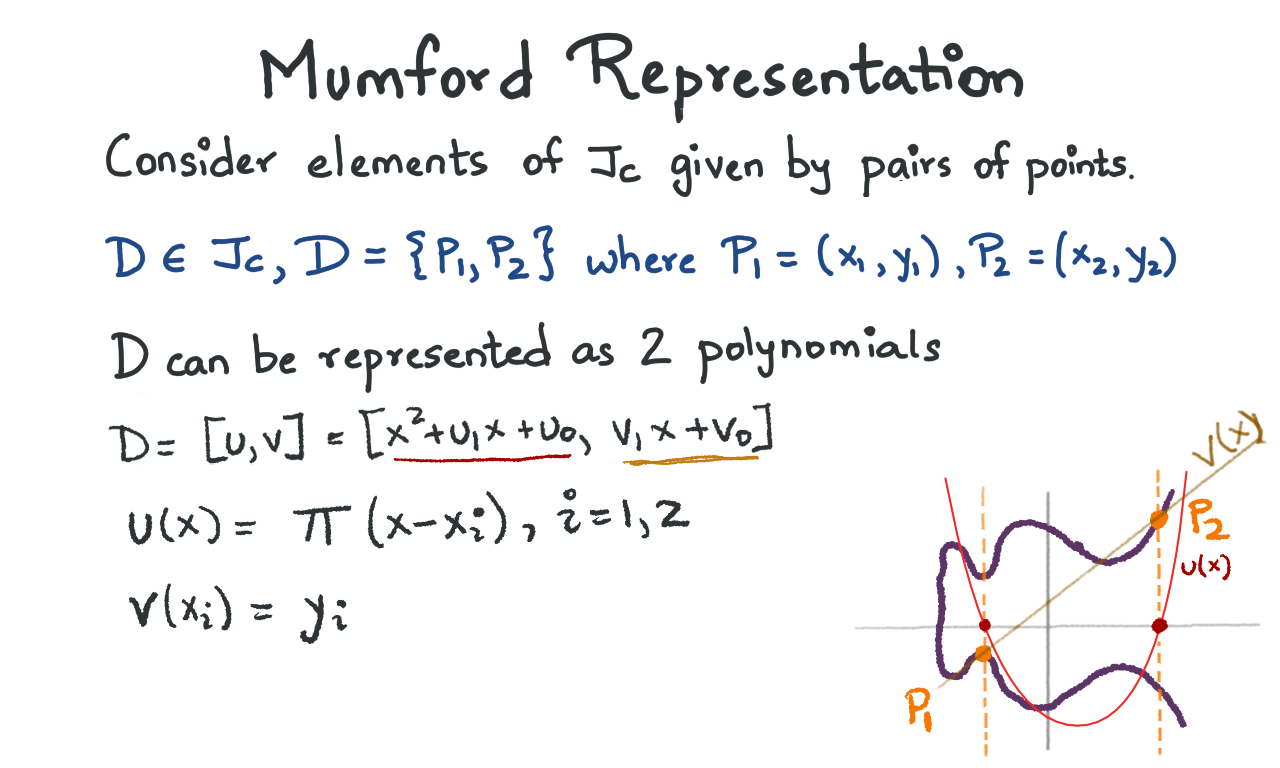 Mumford Representation
Consider elements of Jc given by pairs of points.
D ∈ Jc, D = {P₁, P₂} where P₁ = (x₁, y₁), P₂ = (x₂, y₂)
D can be represented as 2 polynomials
D = [u, v] = [x² + u₁x + u₀, v₁x + v₀]
u(x) = π (x-xᵢ), i = 1, 2
v(xᵢ) = yᵢ
v(x)
P₂
u(x)
P₁